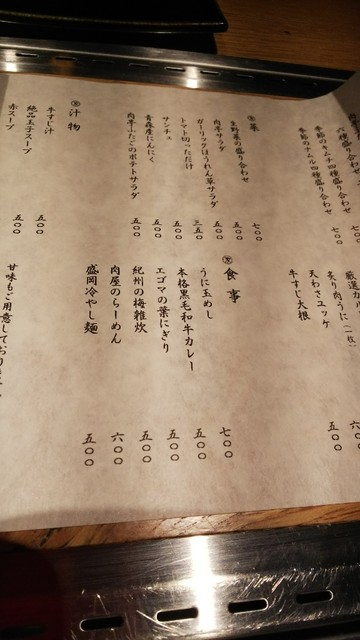 六種盛り合わせ
季節のキムチ四種盛り合わせ 七〇〇
季節のナムル四種盛り合わせ 五〇〇
㊛ 菜
生野菜の盛り合わせ 七〇〇
肉亭サラダ 五〇〇
ガーリックほうれん草サラダ 五〇〇
トマト切っただけ 三五〇
サンチュ 五〇〇
青森産にんにく 五〇〇
肉亭ふたごのポテトサラダ 五〇〇
汁物
牛すじ汁 五〇〇
絶品玉子スープ 五〇〇
赤スープ
厳選カル
炙り肉うに（一枚） 六〇
天わさユッケ 五〇〇
牛すじ大根
食事
うに玉めし 七〇〇
本格黒毛和牛カレー 五〇〇
エゴマの葉にぎり 五〇〇
紀州の梅雑炊 五〇〇
肉屋のらーめん 六〇〇
盛岡冷やし麺 五〇〇
甘味もご用意しております